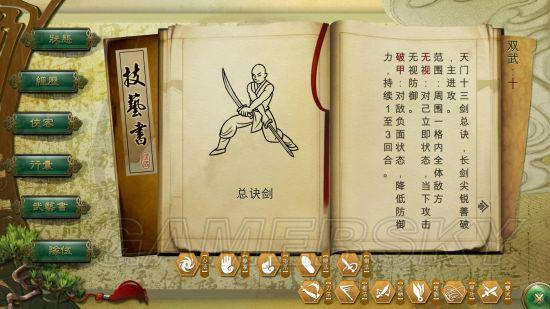 狀態
經歷
俠客
行囊
武藝書
隊伍
技藝書
总诀剑
双武：十
天门十三剑总诀，长剑尖锐善破
，主进攻。
范围：周围一格内全体敌方
无视：对己立即状态，当下攻击
无视防御。
破甲：对敌负面状态，降低防御
力，持续1至3回合。
GAMERSKY